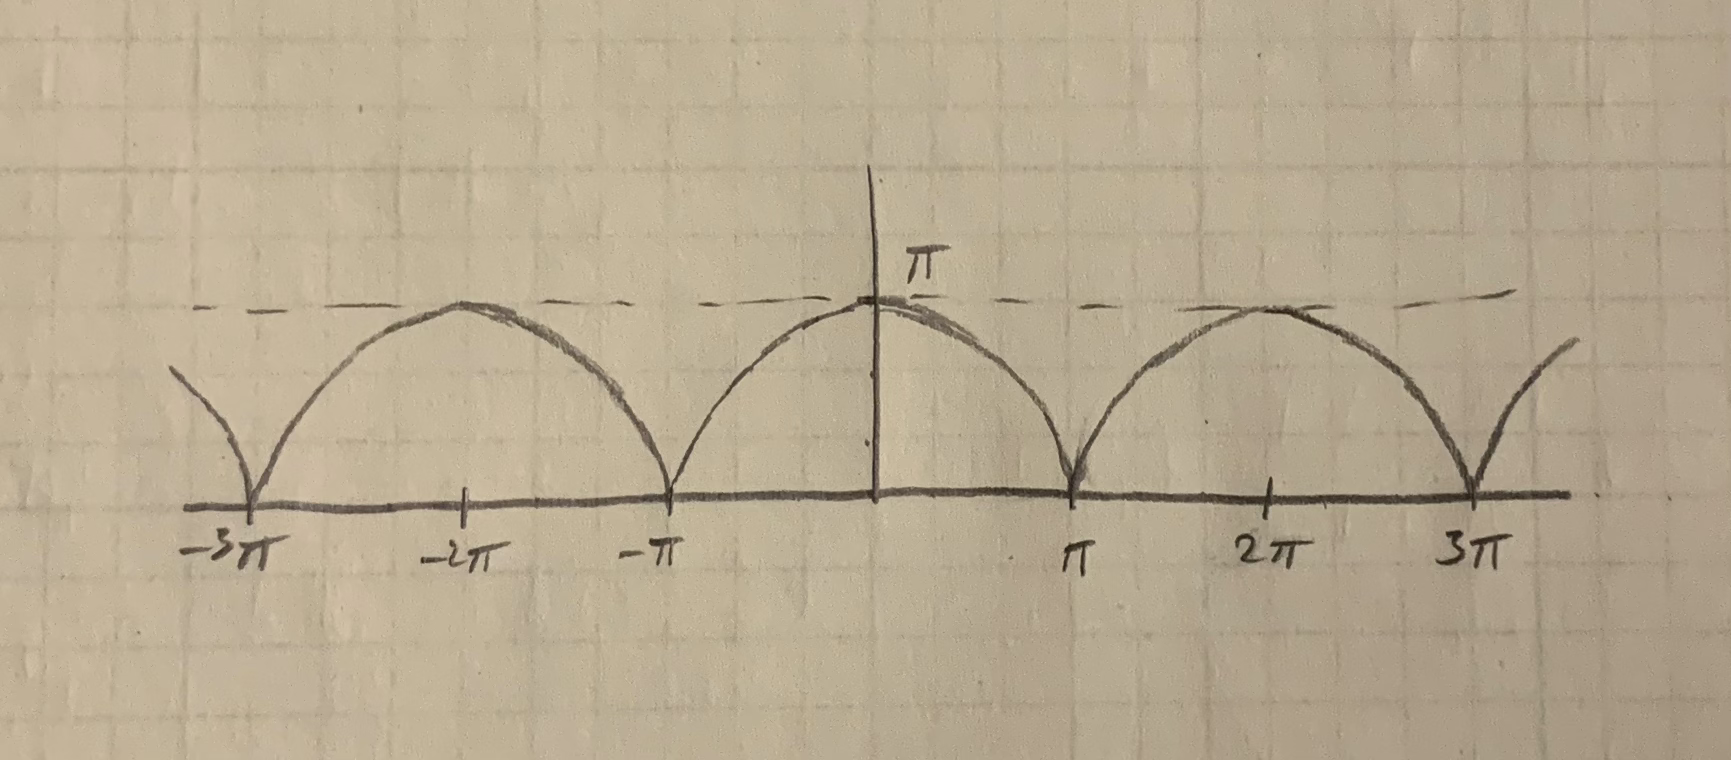 π
-3π -2π -π π 2π 3π